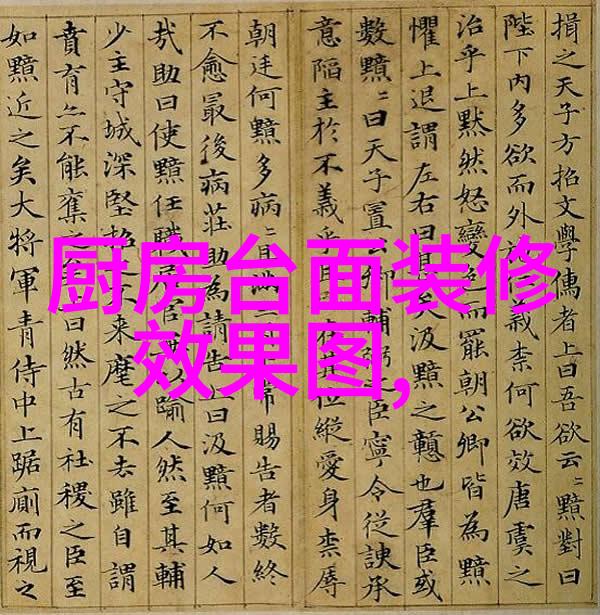 揖之天子方招文學儒者上曰吾欲云〻黯對曰
陛下內多欲而外義柰何欲效唐虞之
治乎上默然怒變色而罷朝公卿皆為黯
懼上退謂左右曰矣汲黯之戇也羣臣或
數黯〻曰天子置卿輔弼臣寧令從諛承
意陷主於不義乎位縱愛身柰辱
朝廷何黯多病〻且滿賜告者數終
不愈最後病莊助為請告曰汲黯何如人
㢤助曰使黯任職居官踰人然至其輔
少主守城深堅招來麾之不去雖自謂
賁育亦不能奪之曰然古有社稷之臣至
如黯近之矣大將軍青侍中上踞廁而視之
厨房台面装修
效果图,